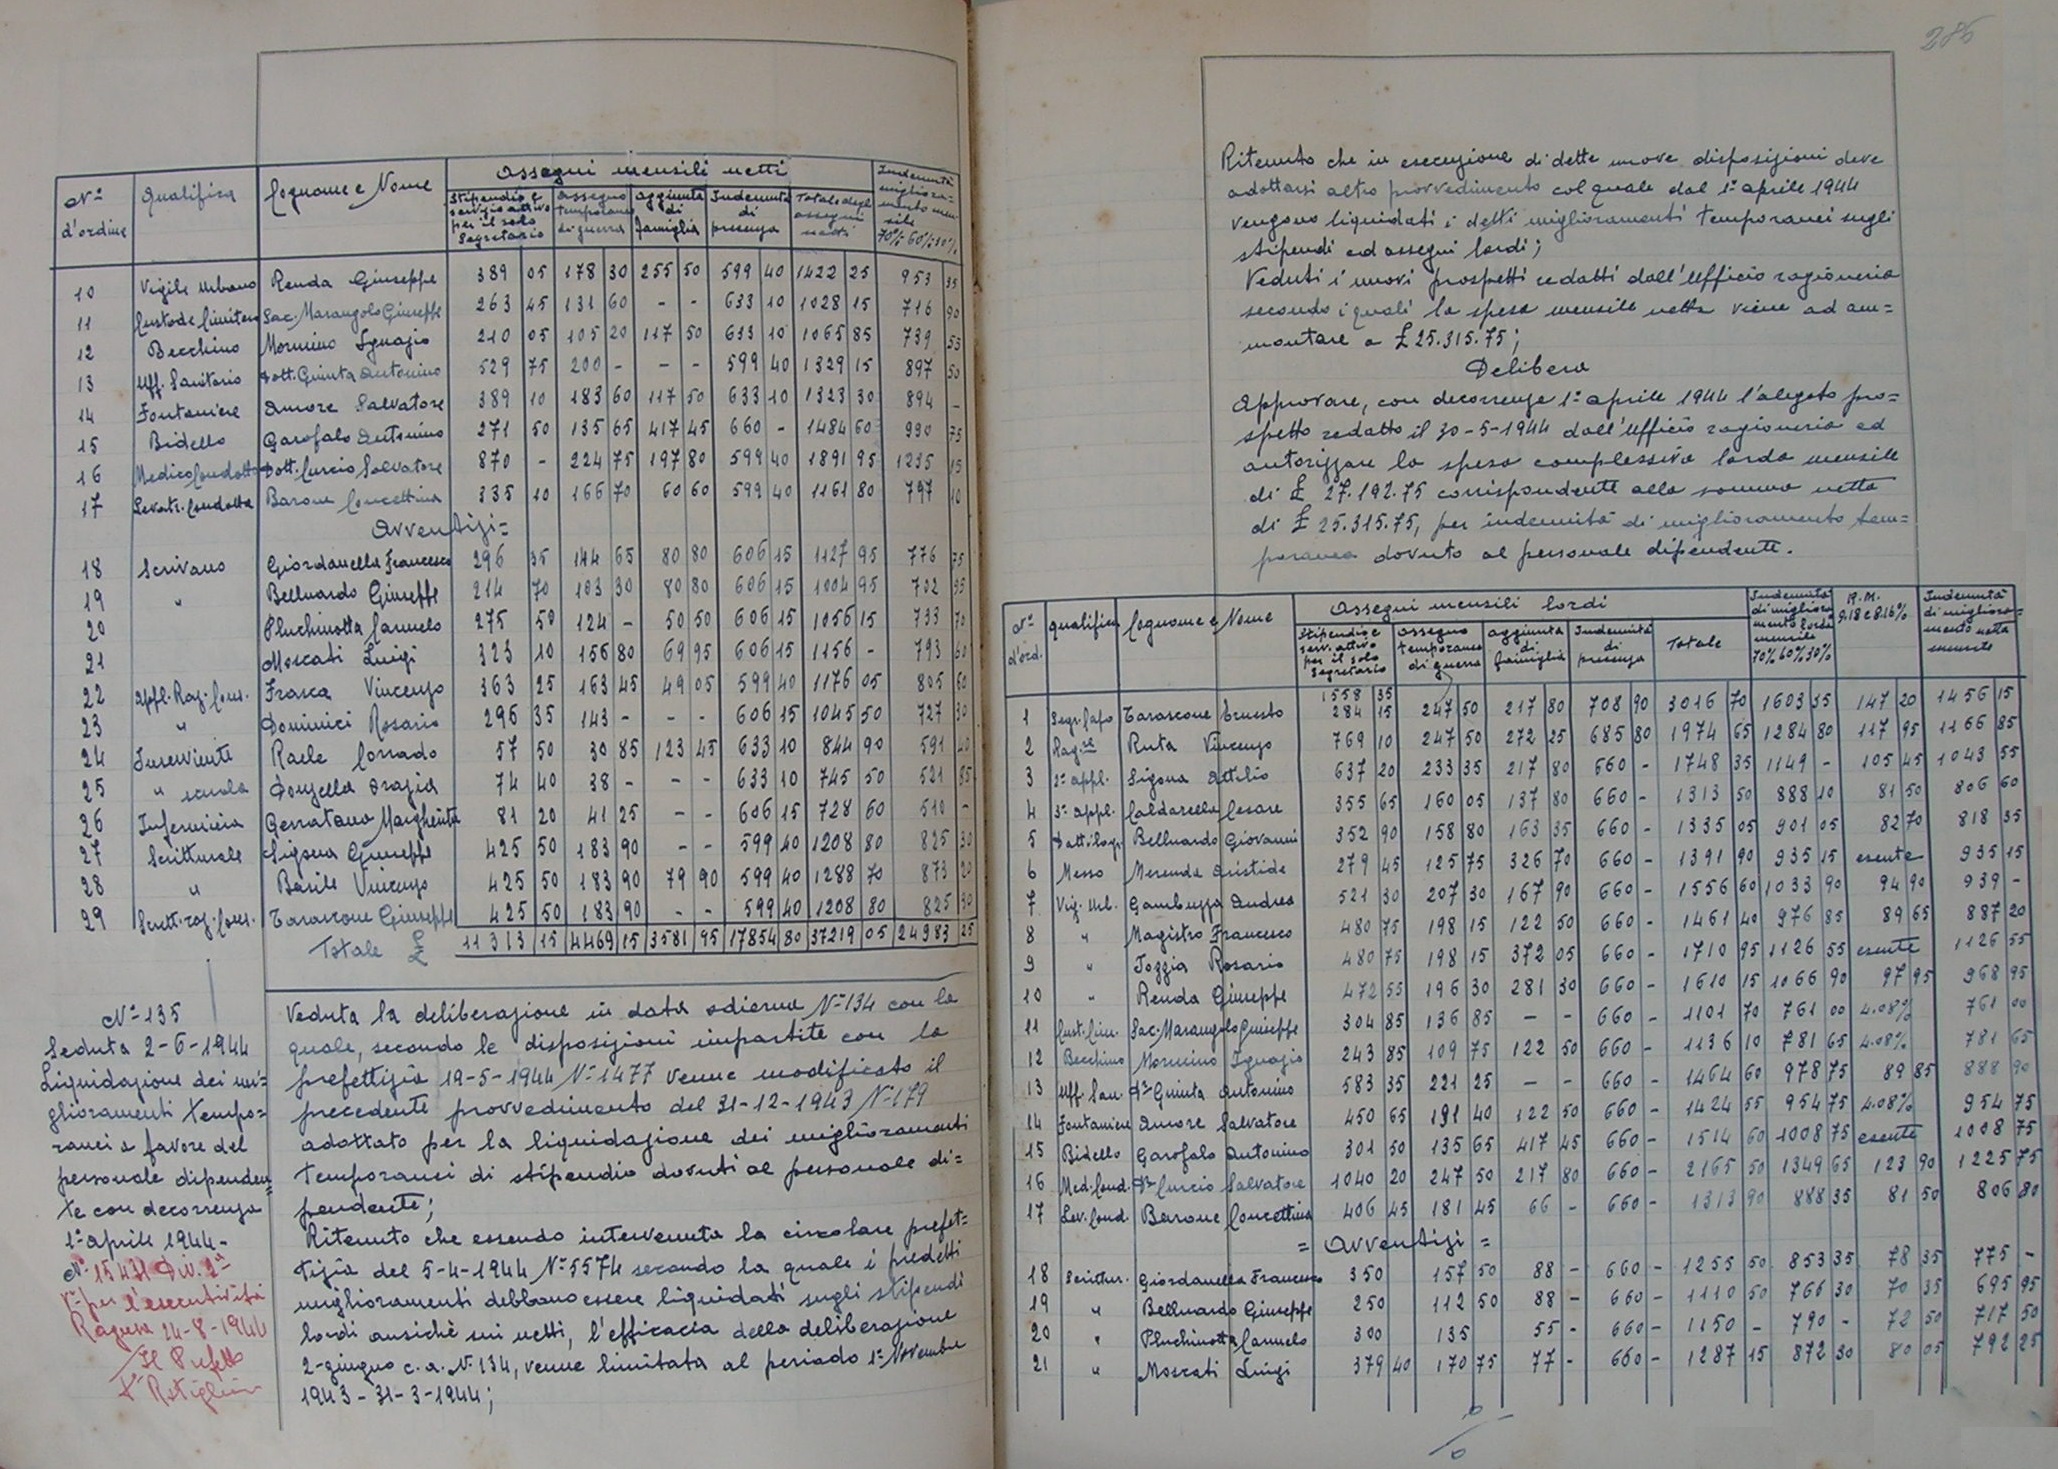 Assegni mensili netti
N° d'ordine Qualifica Cognome e Nome Stipendio e servizio attivo per il solo Segretario assegno temporaneo di guerra aggiunta di famiglia Indennità di presenza Totale degli assegni netti Indennità miglioramento mensile 70% 60% 30%
10 Vigile Urbano Renda Giuseppe 389 05 178 30 255 50 599 40 1422 25 953 35
11 Custode Cimitero Sac. Marangolo Giuseppe 263 45 131 60 - - 633 10 1028 15 716 90
12 Becchino Mormino Ignazio 210 05 105 20 117 50 633 10 1065 85 739 55
13 Uff. Sanitario Dott. Giunta Antonino 529 75 200 - - - 599 40 1329 15 897 50
14 Fontaniere Amore Salvatore 389 10 183 60 117 50 633 10 1323 30 894 -
15 Bidello Garofalo Antonino 271 50 135 65 417 45 660 - 1484 60 990 75
16 Medico Condotto Dott. Curcio Salvatore 870 - 224 75 197 80 599 40 1891 95 1235 15
17 Levatr. Condotta Barone Concettina 335 10 166 70 60 60 599 40 1161 80 797 10
Avventizi=
18 Scrivano Giordanella Francesco 296 35 144 65 80 80 606 15 1127 95 776 75
19 " Belluardo Giuseppe 214 70 103 30 80 80 606 15 1004 95 702 95
20 Pluchinotta Carmelo 275 50 124 - 50 50 606 15 1056 15 733 70
21 Moscati Luigi 323 10 156 80 69 95 606 15 1156 - 793 60
22 appl. Rag. Cons. Frasca Vincenzo 363 25 163 45 49 05 599 40 1176 05 805 60
23 " Dominici Rosario 296 35 143 - - - 606 15 1045 50 727 30
24 Inserviente Raele Corrado 57 50 30 85 123 45 633 10 844 90 591 40
25 " scuola Donzella Orazia 74 40 38 - - - 633 10 745 50 521 85
26 Infermiera Gerratana Margherita 81 20 41 25 - - 606 15 728 60 510 -
27 Scritturale Sigona Giuseppe 425 50 183 90 - - 599 40 1208 80 825 30
28 " Basile Vincenzo 425 50 183 90 79 90 599 40 1288 70 873 20
29 Scritt. rag. Cons. Tarascone Giuseppe 425 50 183 90 - - 599 40 1208 80 825 30
Totale £ 11313 15 4469 15 3581 95 17854 80 37219 05 24983 25
N° 135
Seduta 2-6-1944
Liquidazione dei mi=
glioramenti tempo=
ranei a favore del
personale dipenden=
te con decorrenza
1° aprile 1944-
N° 15431 Div. 2ª
V° per l'esecutività
Ragusa 24-8-1944
Il Prefetto
Veduta la deliberazione in data odierna N° 134 con la
quale, secondo le disposizioni impartite con la
prefettizia 19-5-1944 N° 1477 venne modificato il
precedente provvedimento del 31-12-1943 N° 179
adottato per la liquidazione dei miglioramenti
temporanei di stipendio dovuti al personale di=
pendente;
Ritenuto che essendo intervenuta la circolare prefet=
tizia del 5-4-1944 N° 5574 secondo la quale i predetti
miglioramenti debbono essere liquidati sugli stipendi
lordi anzichè sui netti, l'efficacia della deliberazione
2-giugno c.a. N. 134, venne limitata al periodo 1° Novembre
1943 - 31-3-1944;
286
Ritenuto che in esecuzione di dette nuove disposizioni deve
adottarsi altro provvedimento col quale dal 1° aprile 1944
vengono liquidati i detti miglioramenti temporanei sugli
stipendi ed assegni lordi;
Veduti i nuovi prospetti redatti dall'Ufficio ragioneria
secondo i quali la spesa mensile netta viene ad am=
montare a £ 25.315.75;
Delibera
Approvare, con decorrenza 1° aprile 1944 l'alegato pro=
spetto redatto il 30-5-1944 dall'Ufficio ragioneria ed
autorizzare la spesa complessiva lorda mensile
di £ 27.192.75 corrispondente alla somma netta
di £ 25.315.75, per indennità di miglioramento tem=
poranea dovuto al personale dipendente.
Assegni mensili lordi
N° d'ord. Qualifica Cognome e Nome Stipendio e serv. attivo per il solo Segretario assegno temporaneo di guerra aggiunta di famiglia Indennità di presenza Totale Indennità di migliora mento lorda mensile 70% 60% 30% R.M. 9.18 e 8.16% Indennità di migliora= mento netta mensile
1 Segr. Capo Tarascone Ernesto 1558 35 284 15 247 50 217 80 708 90 3016 70 1603 35 147 20 1456 15
2 Rag.re Ruta Vincenzo 769 10 247 50 272 25 685 80 1974 65 1284 80 117 95 1166 85
3 2° appl. Sigona Attilio 637 20 233 35 217 80 660 - 1748 35 1149 - 105 45 1043 55
4 3° appl. Caldarella Cesare 355 65 160 05 137 80 660 - 1313 50 888 10 81 50 806 60
5 Dattilogr. Belluardo Giovanni 352 90 158 80 163 35 660 - 1335 05 901 05 82 70 818 35
6 Messo Merenda Aristide 279 45 125 75 326 70 660 - 1391 90 935 15 esente 935 15
7 Vig. Urb. Gambuzza Andrea 521 30 207 30 167 90 660 - 1556 60 1033 90 94 90 939 -
8 " Magistro Francesco 480 75 198 15 122 50 660 - 1461 40 976 85 89 65 887 20
9 " Foggia Rosario 480 75 198 15 372 05 660 - 1710 95 1126 55 esente 1126 55
10 " Renda Giuseppe 472 55 196 30 281 30 660 - 1610 15 1066 90 97 95 968 95
11 Cust. Cim. Sac. Marangolo Giuseppe 304 85 136 85 - - 660 - 1101 70 761 00 4.08% 761 00
12 Becchino Mormino Ignazio 243 85 109 75 122 50 660 - 1136 10 781 65 4.08% 781 65
13 Uff. San. Dr Giunta Antonino 583 35 221 25 - - 660 - 1464 60 978 75 89 85 888 90
14 Fontaniere Amore Salvatore 450 65 191 40 122 50 660 - 1424 55 954 75 4.08% 954 75
15 Bidello Garofalo Antonino 301 50 135 65 417 45 660 - 1514 60 1008 75 esente 1008 75
16 Med. Cond. Dr Curcio Salvatore 1040 20 247 50 217 80 660 - 2165 50 1349 65 123 90 1225 75
17 Lev. Cond. Barone Concettina 406 45 181 45 66 - 660 - 1313 90 888 35 81 50 806 80
= Avventizi =
18 Scrittur. Giordanella Francesco 350 157 50 88 - 660 - 1255 50 853 35 78 35 775 -
19 " Belluardo Giuseppe 250 112 50 88 - 660 - 1110 50 766 30 70 35 695 95
20 " Pluchinotta Carmelo 300 135 55 - 660 - 1150 - 790 - 72 50 717 50
21 " Moscati Luigi 379 40 170 75 77 - 660 - 1287 15 872 30 80 05 792 25